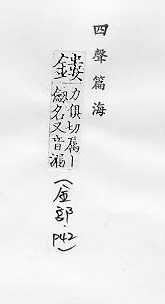 四聲篇海
鏤
力俱切屬丨
劒名又音漏
(金部．P42)